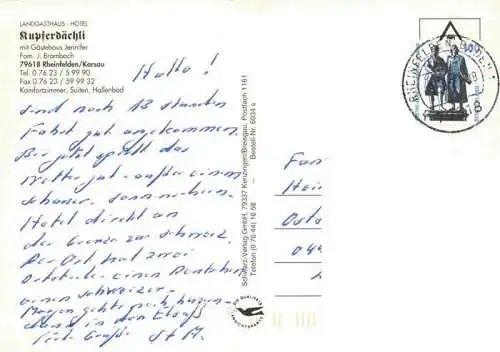 LANDGASTHAUS - HOTEL
Kupferdächli
mit Gästehaus Jennifer
Fam. J. Brombach
79618 Rheinfelden/Karsau
Tel. 0 76 23 / 5 99 90
Fax 0 76 23 / 59 99 32
Komfortzimmer, Suiten, Hallenbad
Hallo!
sind nach 13 Stunden
Fahrt gut angekommen.
Bis jetzt spielt das
Wetter gut - außer einem
Schauer, Sonnenschein.
Hotel direkt an
der Grenze zur Schweiz.
Der Ort hat zwei
Ortsteile einen Deutschen
einen Schweizer.
Morgen gehts nach
dann in den Elsaß
viele Grüße
Schwarz-Verlag GmbH, 79337 Kenzingen/Breisgau, Postfach 1161
Telefon (0 76 44) 16 58 – Bestell-Nr. 6034 s
DIE QUALITÄTS
ANSICHTSKARTE
Fam
Hei
Osta
044
100
RHEINFELDEN